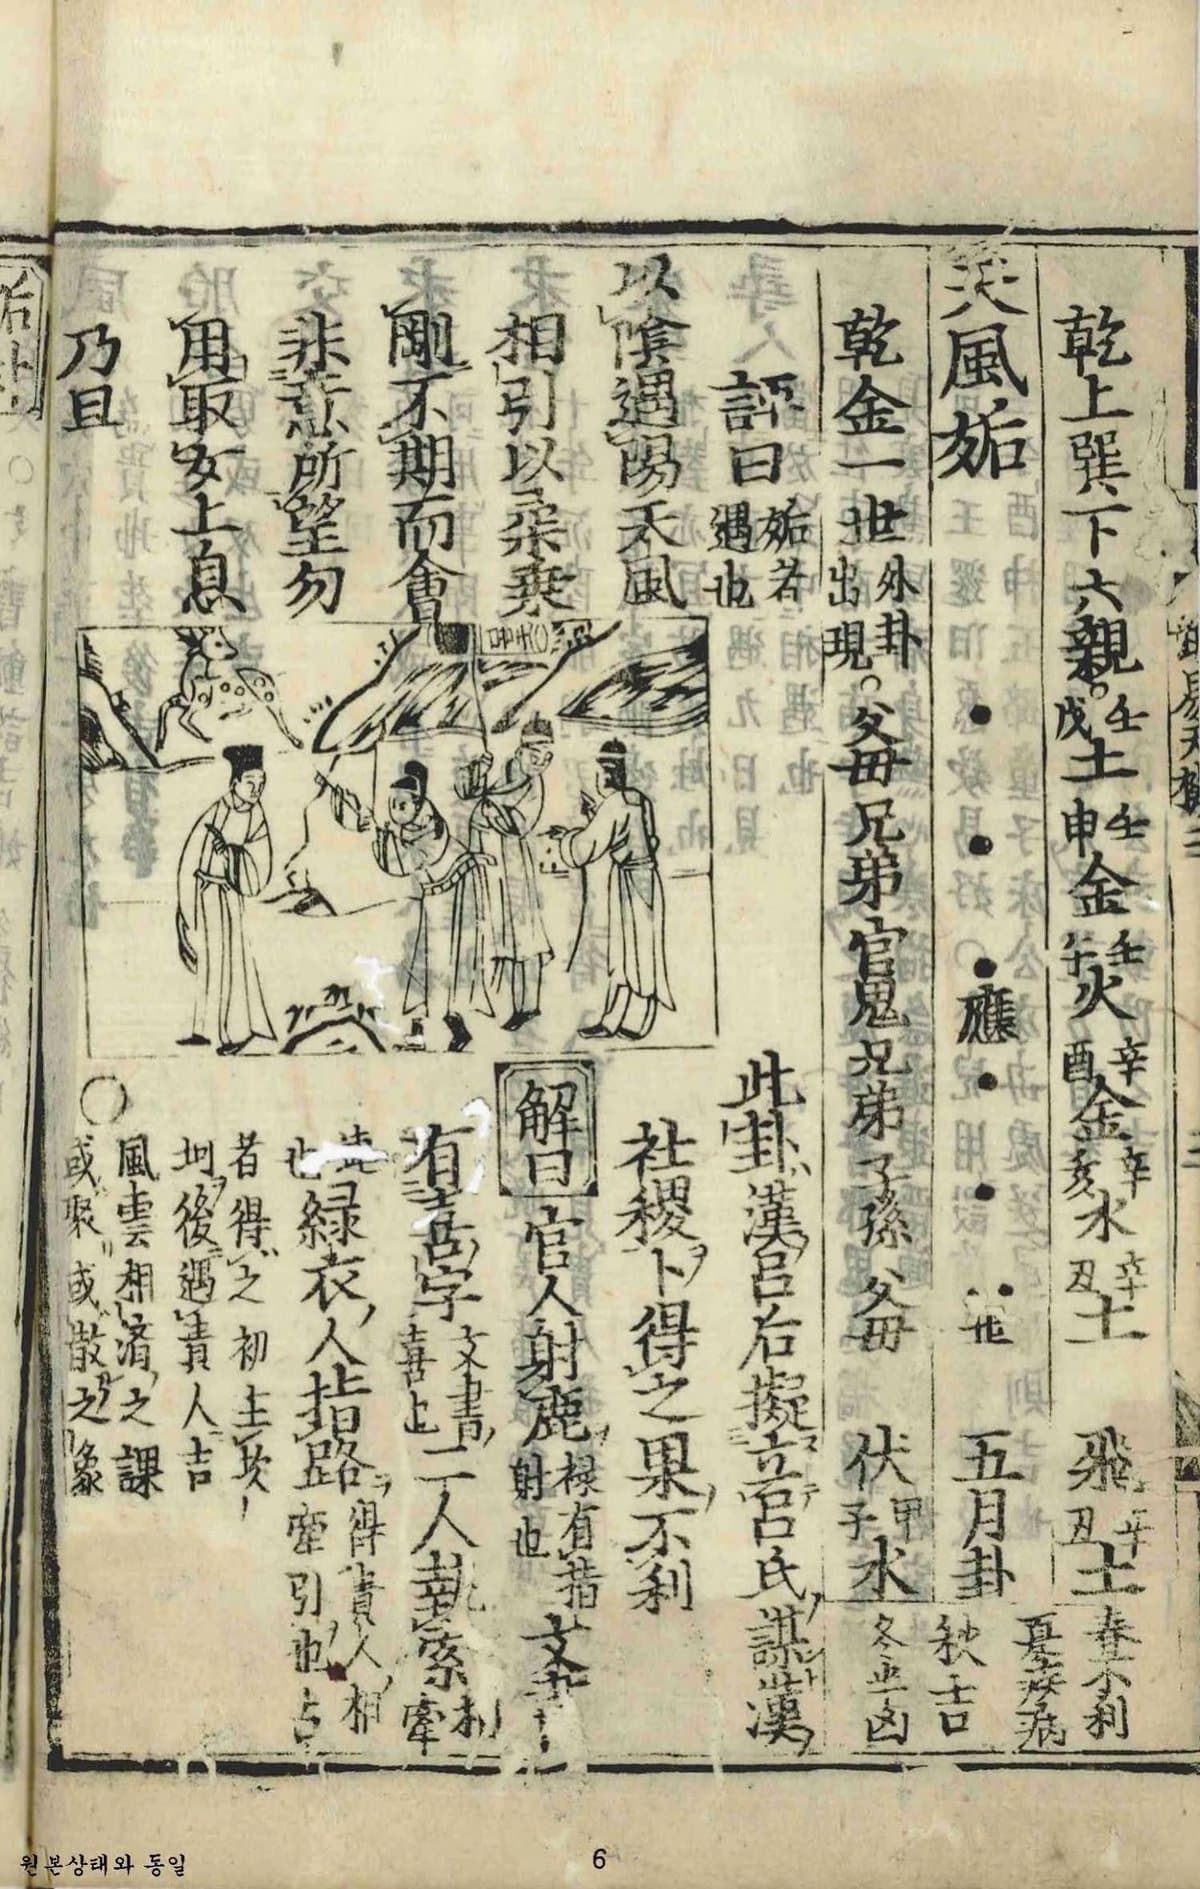 乾上巽下六親○壬戌土壬申金壬午火辛酉金辛亥水辛丑土 飛辛丑土
春不利
夏疾病
天風姤 應 世 五月卦
秋吉
冬凶
乾金一世外卦出現○父母兄弟官鬼兄弟子孫父母 伏甲子水
評曰姤者遇也
以陰遇陽天風
相引以柔乘
剛不期而會
非意所望勿
用取女上息
乃且
此卦漢呂后擬立呂氏謀漢
社稷卜得之果不利
解曰官人射鹿祿有指射也文書
有喜字文書喜上二人執索牽
也綠衣人指路得貴人相牽引也占
者得之初主坎
坷後遇貴人吉
○風雲相濟之課
或聚或散之象
姤卦
원본상태와 동일
6